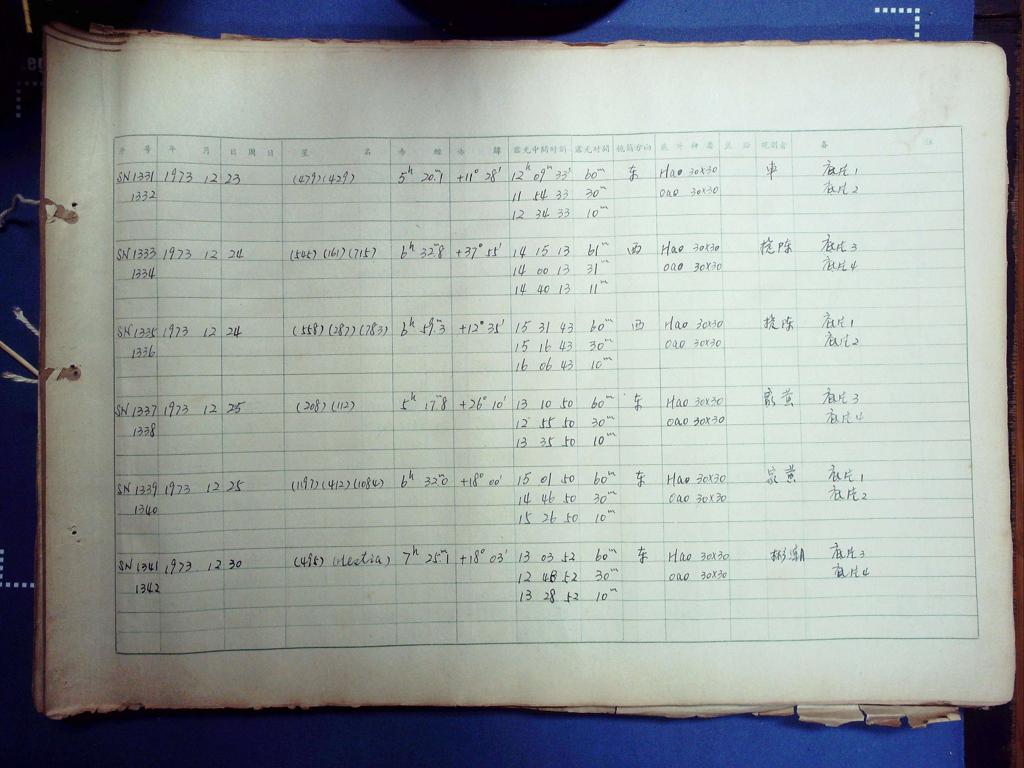 序 号 年 月 日 周 日 星 名 赤 經 赤 緯 露光中間时刻 露光时间 鏡筒方向 底 片 种 类 观测者 备 註
SN 1331 1973 12 23 (479)(429) 5h 20m.1 +11° 28' 12h 09m 33s 60m 东 Hao 30×30 底片1
1332 11 54 33 30m oao 30×30 底片2
12 34 33 10m
SN 1333 1973 12 24 (545)(161)(715) 6h 32m.8 +37° 55' 14 15 13 61m 西 Hao 30×30 陈 底片3
1334 14 00 13 31m oao 30×30 底片4
14 40 13 11m
SN 1335 1973 12 24 (558)(287)(783) 6h 59m.3 +12° 35' 15 31 43 60m 西 Hao 30×30 陈 底片1
1336 15 16 43 30m oao 30×30 底片2
16 06 43 10m
SN 1337 1973 12 25 (208)(112) 5h 17m.8 +26° 10' 13 10 50 60m 东 Hao 30×30 黄 底片3
1338 12 55 50 30m oao 30×30 底片4
13 35 50 10m
SN 1339 1973 12 25 (1197)(412)(1084) 6h 32m.0 +18° 00' 15 01 50 60m 东 Hao 30×30 黄 底片1
1340 14 46 50 30m oao 30×30 底片2
15 26 50 10m
SN 1341 1973 12 30 (495)(Hestia) 7h 25m.1 +18° 03' 13 03 52 60m 东 Hao 30×30 底片3
1342 12 48 52 30m oao 30×30 底片4
13 28 52 10m